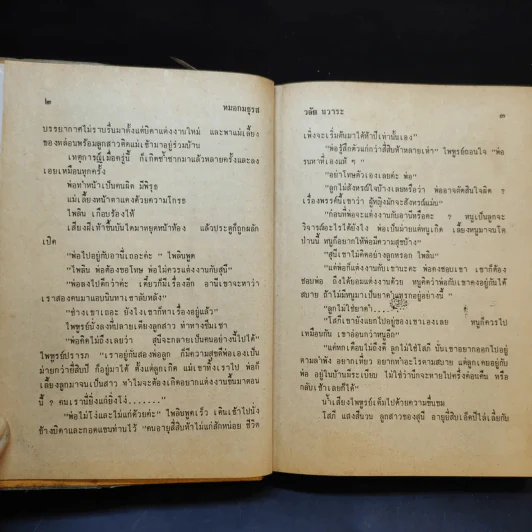 ๒
หมอกมธุรส
บรรยากาศไม่ราบรื่นมาตั้งแต่บิดาแต่งงานใหม่ และพาแม่เลี้ยง
ของหล่อนพร้อมลูกสาวติดแม่เข้ามาอยู่ร่วมบ้าน
เหตุการณ์เมื่อครู่นี้ ก็เกิดซ้ำซากมาแล้วหลายครั้งและลง
เอยเหมือนทุกครั้ง
พ่อทำหน้าเป็นคนผิด มีพิรุธ
แม่เลี้ยงหน้าตาแดงด้วยความโกรธ
ไพลิน เกือบร้องไห้
เสียงฝีเท้าขึ้นบันไดมาหยุดหน้าห้อง แล้วประตูก็ถูกผลัก
เปิด
"พ่อไปอยู่กับอานี่เถอะค่ะ" ไพลินพูด
"ไพลิน พ่อต้องขอโทษ พ่อไม่ควรแต่งงานกับสุนี"
"พ่อลงไปดีกว่าค่ะ เดี๋ยวก็มีเรื่องอีก อานีเขาจะหาว่า
เราสองคนมาแอบนินทาเขาลับหลัง"
"ช่างเขาเถอะ ยังไงเขาก็หาเรื่องอยู่แล้ว"
ไพฑูรย์นั่งลงที่ปลายเตียงลูกสาว ท่าทางซึมเซา
"พ่อคิดไม่ถึงเลยว่า สุนีจะกลายเป็นคนอย่างนี้ไปได้"
ไพฑูรย์ปรารภ "เราอยู่กันสองพ่อลูก ก็มีความสุขดีพ่อเองเป็น
ม่ายกว่าสิบปี ก็อยู่มาได้ ตั้งแต่ลูกเด็ก แม่เขาทิ้งเราไป พ่อก็
เลี้ยงลูกมาจนเป็นสาว ทำไมจะต้องเกิดอยากแต่งงานขึ้นมาตอน
นี้ ? คนเรานี่ยิ่งแก่ยิ่งโง่......."
"พ่อไม่โง่และไม่แก่ด้วยค่ะ" ไพลินพูดเร็ว เดินเข้าไปนั่ง
ข้างบิดาและกอดแขนท่านไว้ "คนอายุสี่สิบห้าไม่แก่สักหน่อย ชีวิต
วลัย นวาระ
๓
เพิ่งจะเริ่มต้นมาได้ห้าปีเท่านั้นเอง"
"พ่อรู้สึกตัวแก่กว่าสี่สิบห้าหลายเท่า" ไพฑูรย์ถอนใจ "พ่อ
รนหาที่เองแท้ ๆ"
"อย่าโทษตัวเองเลยค่ะ พ่อ"
"ลูกไม่สังหรณ์ใจบ้างเลยหรือว่า พ่ออาจตัดสินใจผิด ?
เรื่องพรรค์นี้เขาว่า ผู้หญิงมักจะสังหรณ์แม่น"
"ก่อนที่พ่อจะแต่งงานกับอานีหรือคะ ? หนูเป็นลูกจะ
วิจารณ์อะไรได้ยังไง พ่อเป็นม่ายแต่หนูเด็ก เลี้ยงหนูมาจนโต
ป่านนี้ หนูก็อยากให้พ่อมีความสุขบ้าง"
"สุนีเขาไม่คิดอย่างลูกหรอก ไพลิน"
"แต่พ่อก็แต่งงานกับเขานะคะ พ่อคงชอบเขา เขาก็ต้อง
ชอบพ่อ ถึงได้ยอมแต่งงานด้วย หนูคิดว่าพ่อกับเขาคงอยู่กันได้
สบาย ถ้าไม่มีหนูมาเป็นยาดำแทรกอยู่อย่างนี้"
"ลูกไม่ใช่ยาดำ.....
"โสภีเขายังแยกไปอยู่ของเขาเองเลย หนูก็ควรไป
เหมือนกัน เขาอ่อนกว่าหนูอีก"
"แต่หกเดือนไม่ถึงดี ลูกก็ไม่ใช่โสภี นั่นเขาอยากออกไปอยู่
ตามลำพัง อยากเที่ยว อยากทำอะไรตามสบาย แต่ลูกเคยอยู่กับ
พ่อ อยู่ในบ้านมีระเบียบ ไม่ใช่ว่านึกจะหายไปครึ่งค่อนคืน หรือ
กลับเช้าเลยก็ได้"
น้ำเสียงไพฑูรย์เต็มไปด้วยความขื่นขม
โสภี แสงสีนวน ลูกสาวของสุนี อายุยี่สิบเอ็ดปีไล่เลี่ยกับ